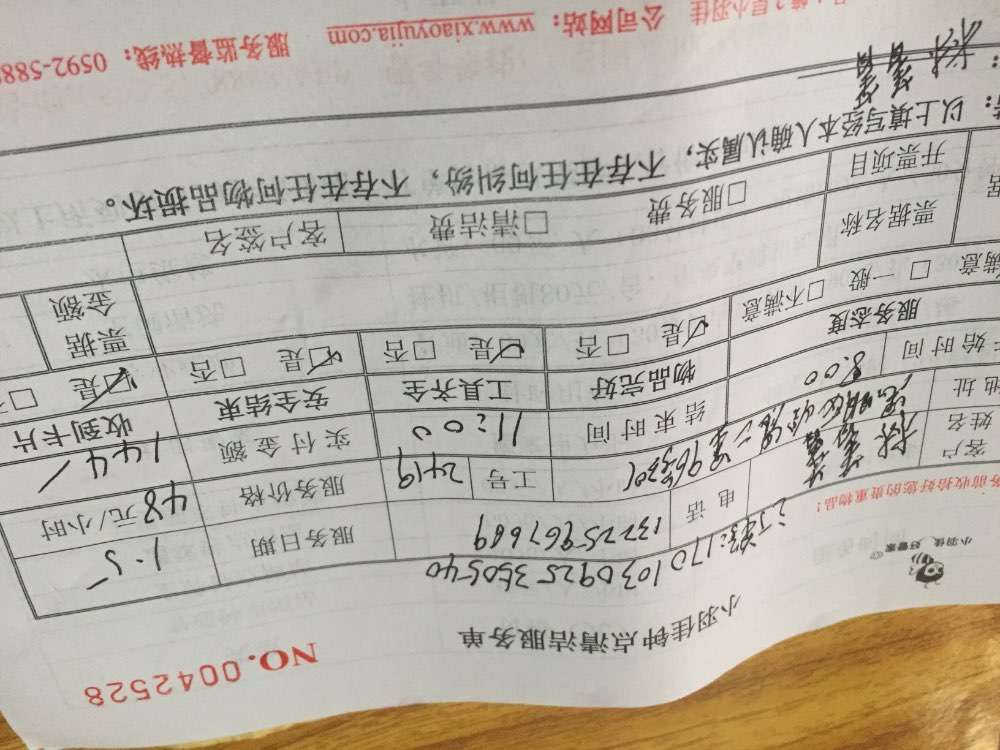 小羽佳钟点清洁服务单
NO.0042528
小羽佳, 好管家
170 1030925 350540
务前收拾好您的贵重物品！
客户姓名
电话 13725967689
服务日期 1.5
地址
工号 2419
服务价格 48 元/小时
始时间 8:00
结束时间 11:00
实付金额 144
服务态度
物品完好
工具齐全
安全结束
收到卡片
满意 □一般 □不满意
☑是 □否
☑是 □否
☑是 □否
☑是 □
票据名称
□服务费 □清洁费
客户签名
票据金额
开票项目
以上填写经本人确认属实，不存在任何纠纷，不存在任何物品损坏。
公司网站：www.xiaoyujia.com 服务监督热线：0592-588